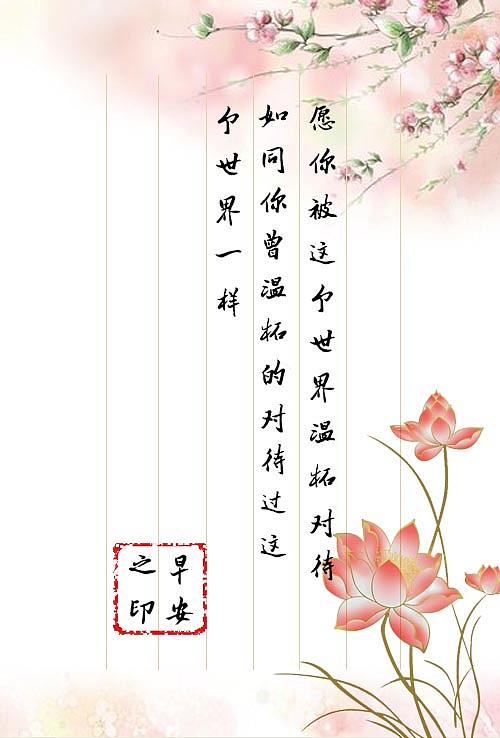 愿你被这个世界温柔对待
如同你曾温柔的对待过这
个世界一样
早安
之印